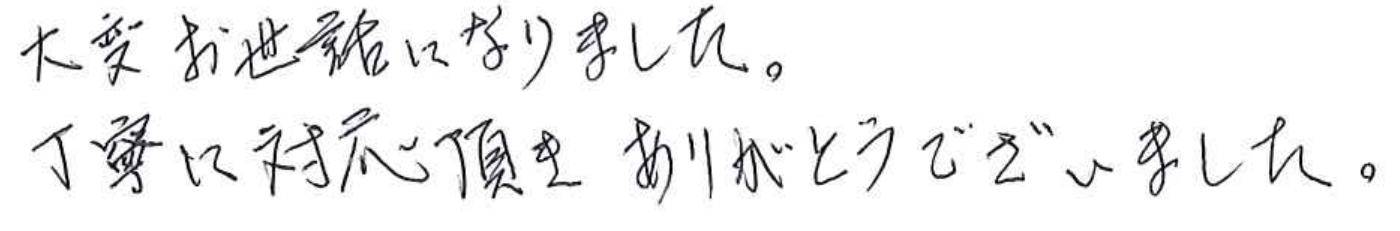 大変お世話になりました。
丁寧に対応頂き ありがとうございました。